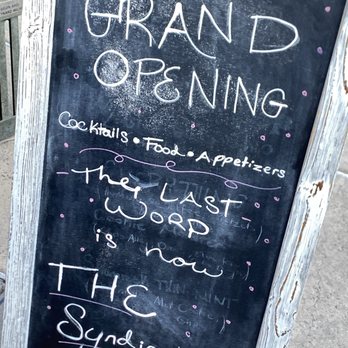 GRAND
OPENING
Cocktails • Food • Appetizers
The LAST
WORD
is now
THE